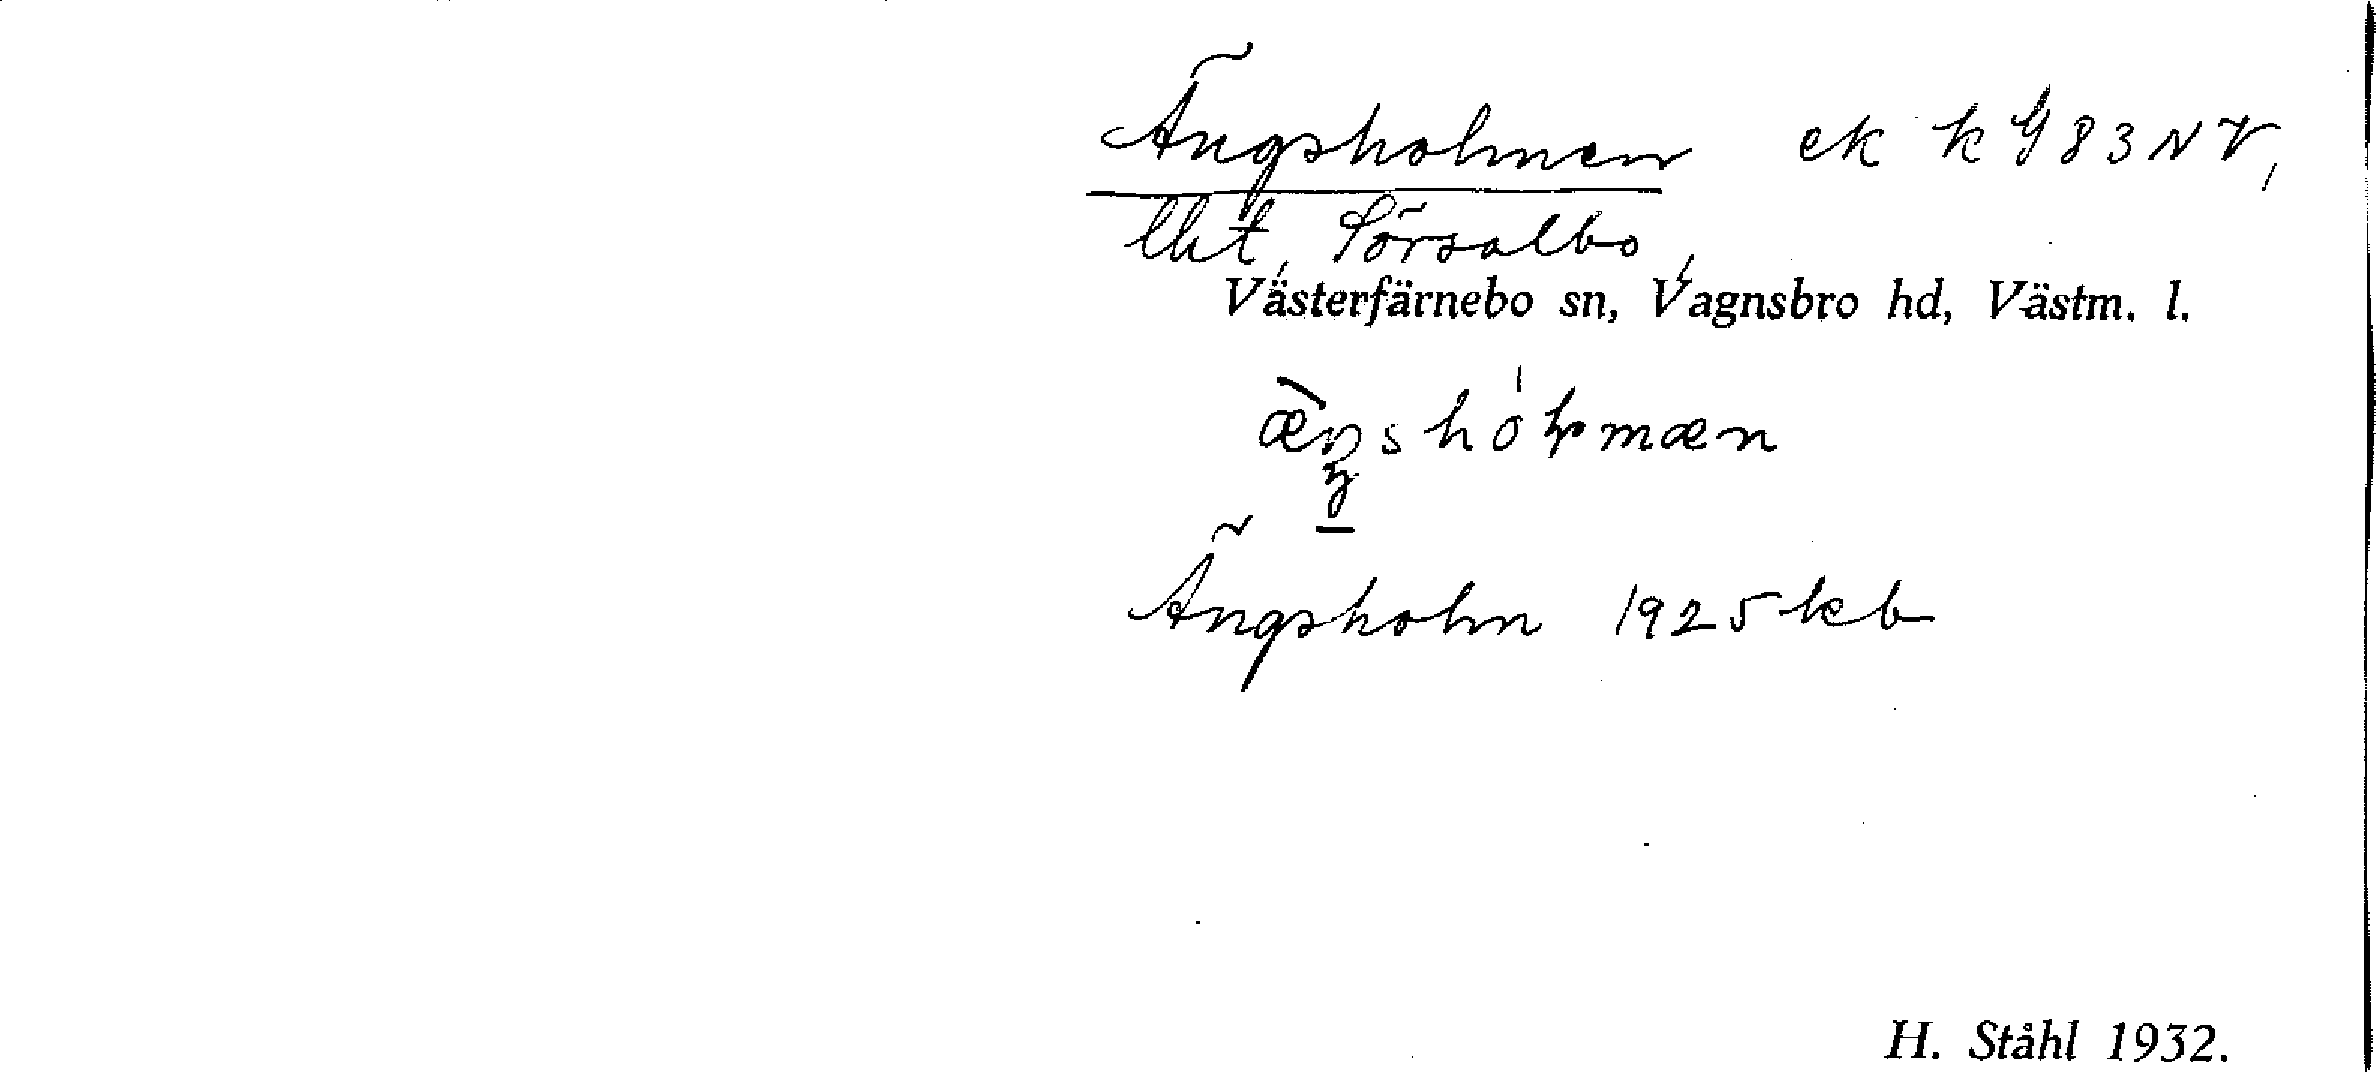 Ängsholmen ek k G 83 NV,
lht, Sörsalbo,
Västerfärnebo sn, Vagnsbro hd, Västm. l.
Ängsholm 1925 kb
H. Ståhl 1932.